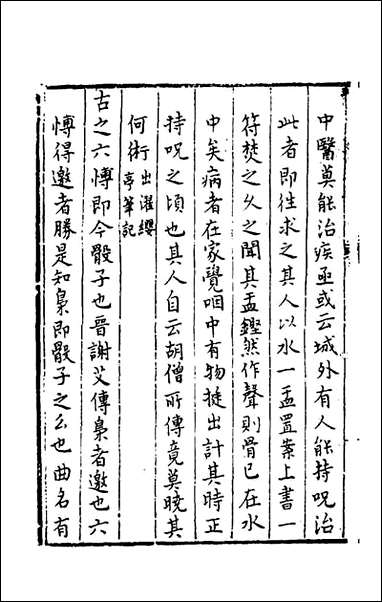 中醫莫能治疾亟或云域外有人能持呪治
此者即往求之其人以水一盂置案上書一
符焚之久之聞其盂鏗然作聲則骨已在水
中矣病者在家覺咽中有物挺出計其時正
持呪之頃也其人自云胡僧所傳竟莫曉其
何術出濯纓亭筆記
古之六愽即今骰子也晉謝艾傳梟者邀也六
愽得邀者勝是知梟即骰子之幺也曲名有